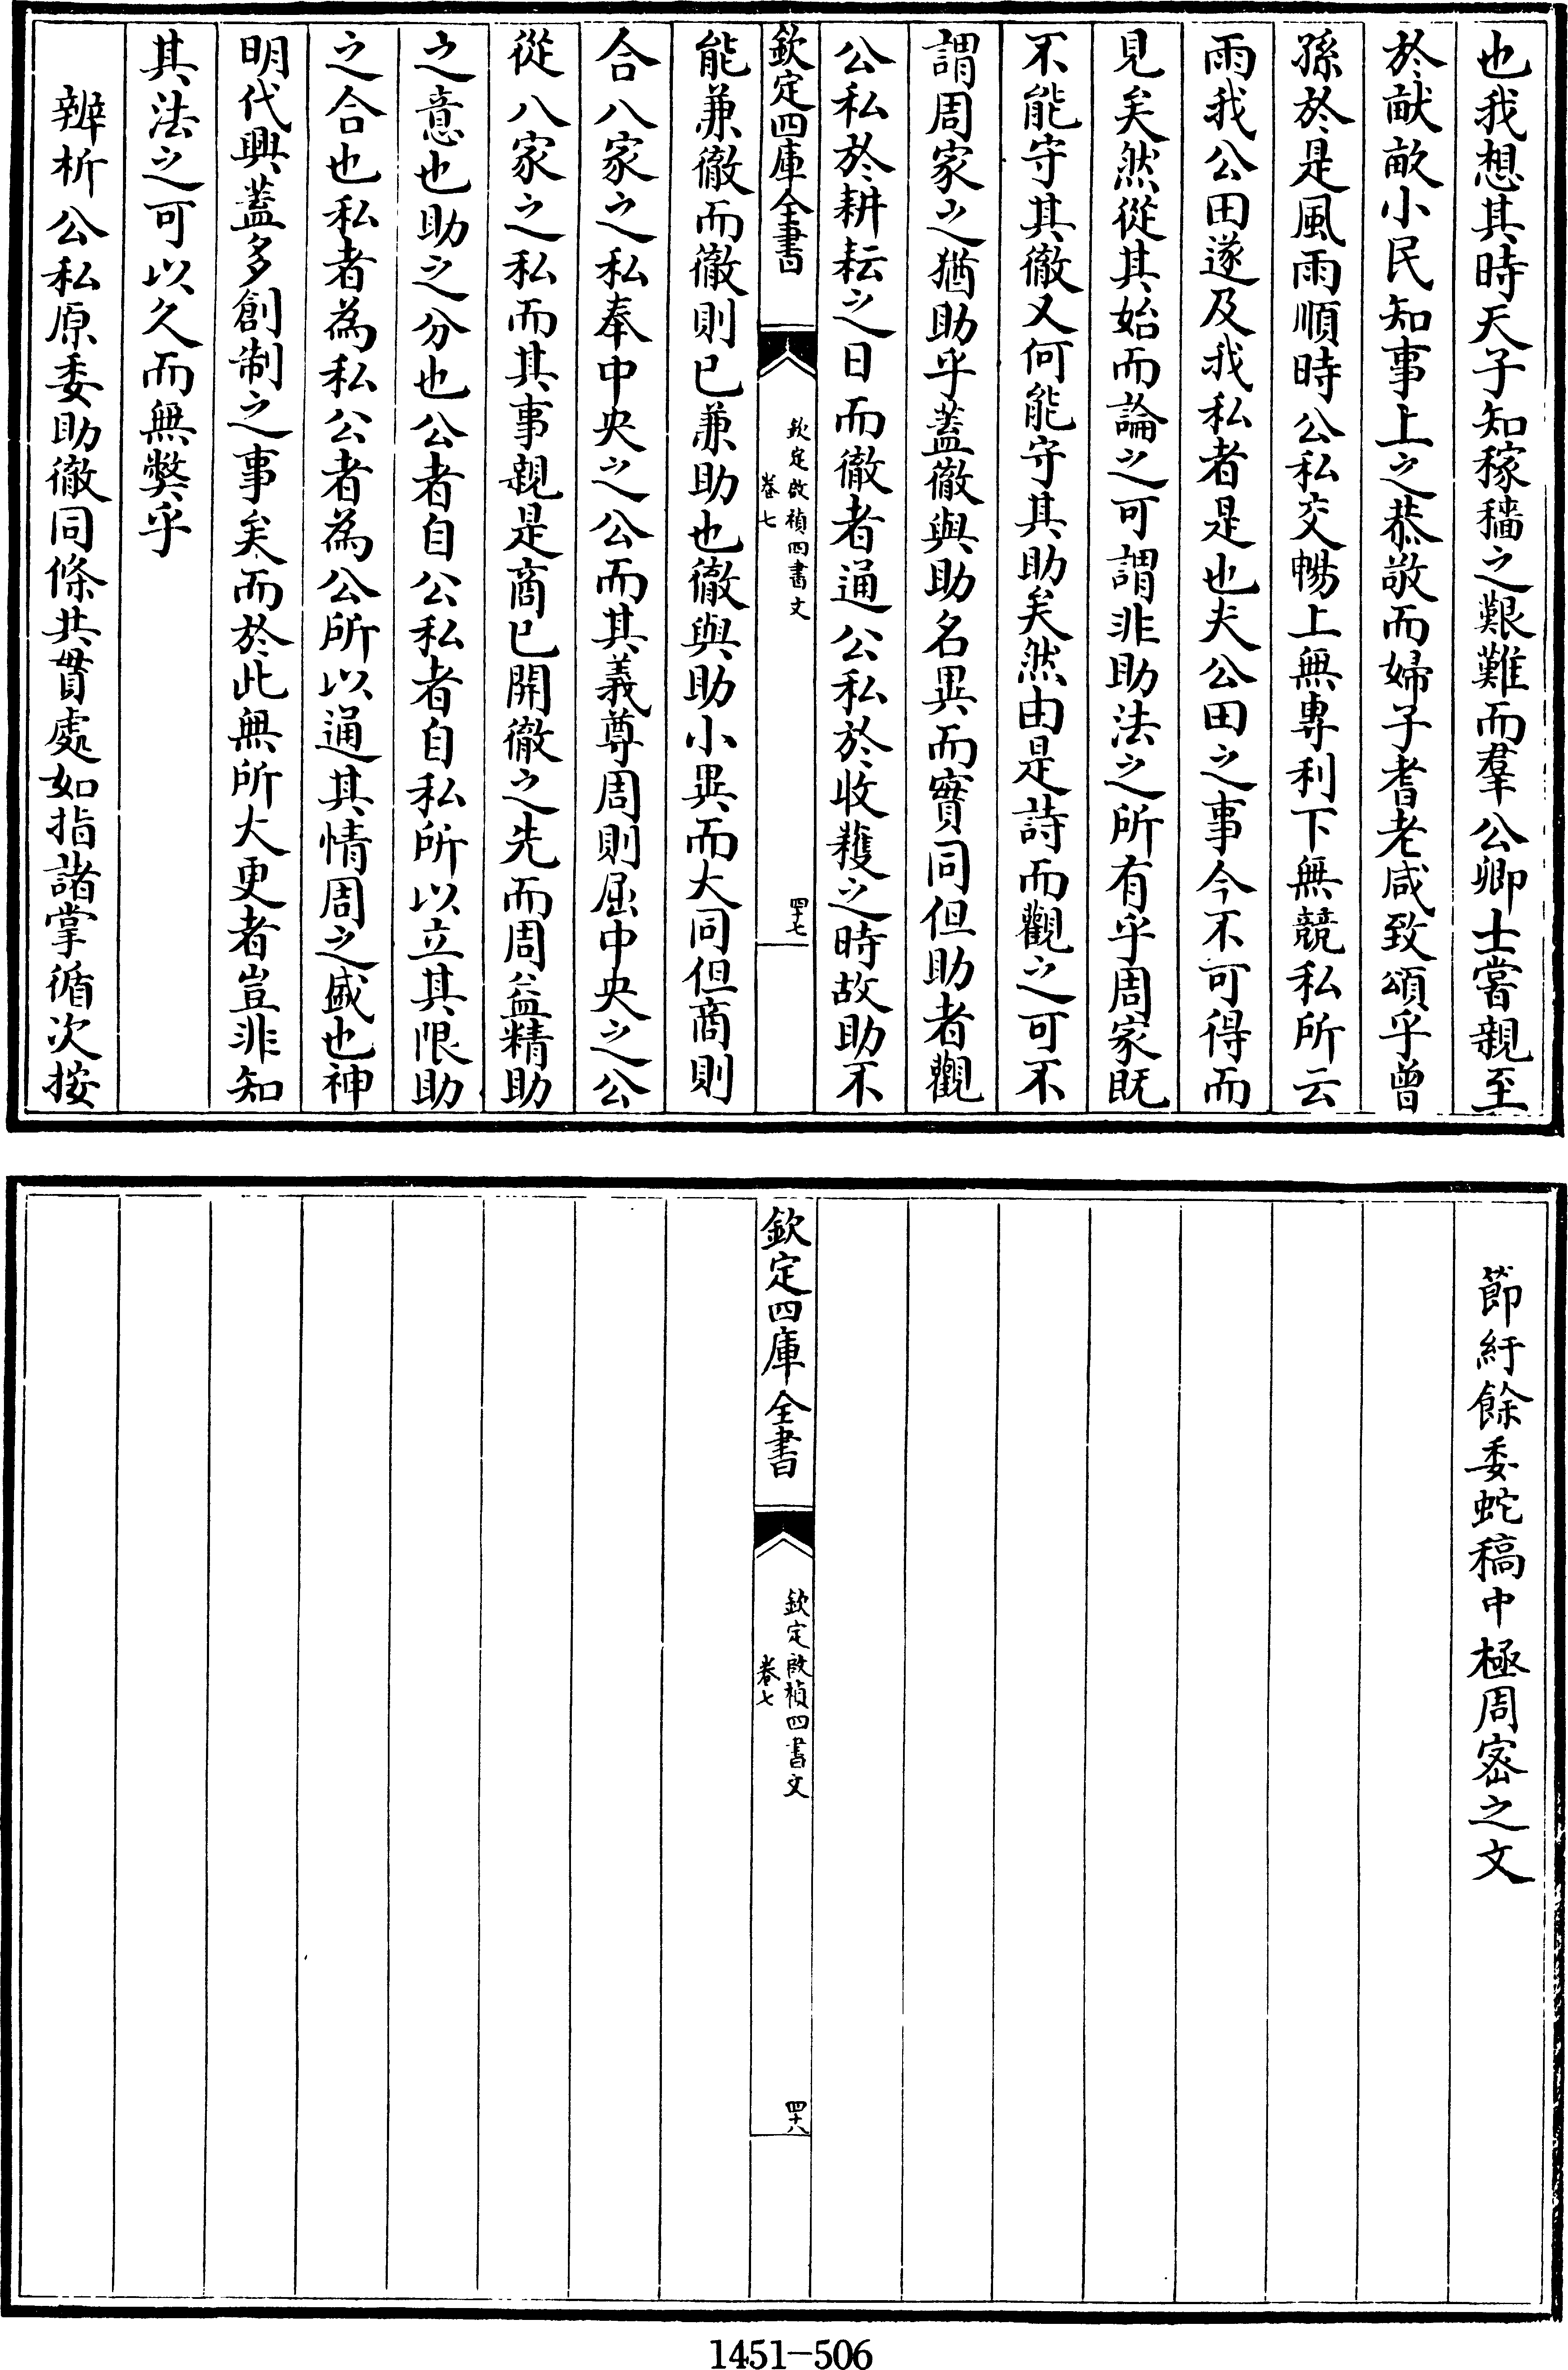 也我想其時天子知稼穡之艱難而羣公卿士嘗親至
於猷畝小民知事上之恭敬而婦子耆老咸致頌乎曾
孫於是風雨順時公私交暢上無專利下無競私所云
雨我公田遂及我私者是也夫公田之事今不可得而
見矣然從其始而論之可謂非助法之所有乎周家既
不能守其徹又何能守其助矣然由是詩而觀之可不
謂周家之猶助乎蓋徹與助名異而實同但助者觀
公私於耕耘之日而徹者通公私於收穫之時故助不
欽定四庫全書
欽定啟禎四書文
卷七
四十七
能兼徹而徹則已兼助也徹與助小異而大同但商則
合八家之私奉中央之公而其義尊周則屈中央之公
從八家之私而其事親是商已開徹之先而周益精助
之意也助之分也公者自公私者自私所以立其限助
之合也私者為私公者為公所以通其情周之盛也神
明代興蓋多創制之事矣而於此無所大更者豈非知
其法之可以久而無弊乎
辨析公私原委助徹同條共貫處如指諸掌循次按
節紆餘委蛇稿中極周密之文
欽定四庫全書
欽定啟禎四書文
卷七
四十八
1451-506